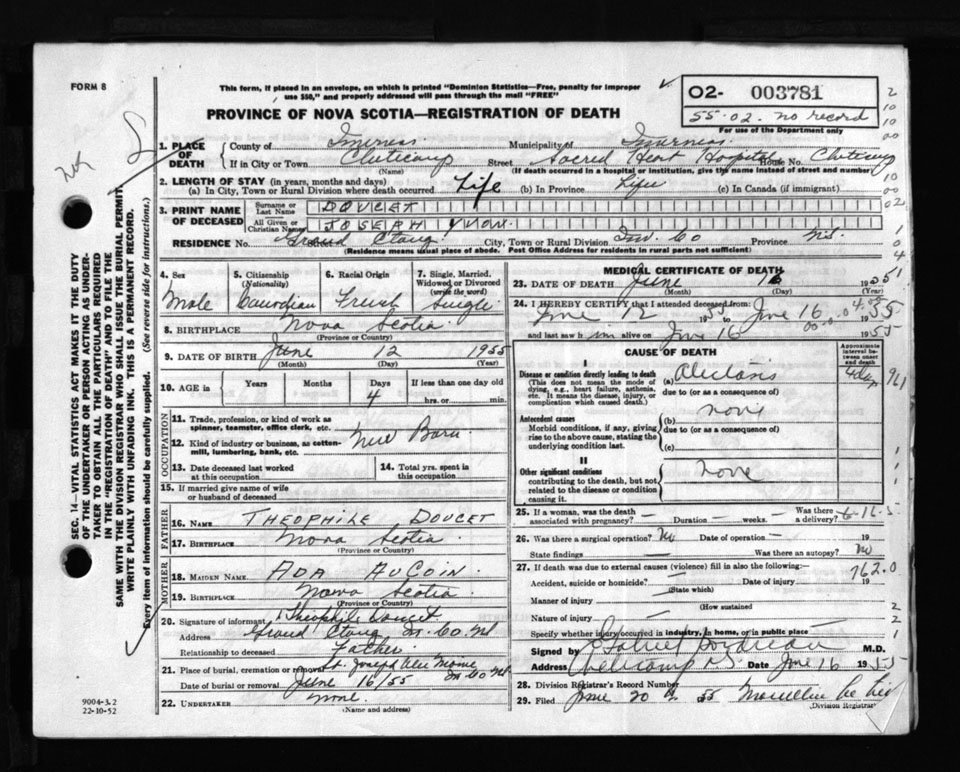 FORM 8
This form, if placed in an envelope, on which is printed "Dominion Statistics—Free, penalty for improper
use $50," and properly addressed will pass through the mail "FREE"
PROVINCE OF NOVA SCOTIA—REGISTRATION OF DEATH
O2- 003781
55-02. no record
For use of the Department only
1. PLACE OF DEATH
County of Inverness Municipality of Inverness
If in City or Town Cheticamp Street Sacred Heart Hospital House No. Cheticamp
(Name) (If death occurred in a hospital or institution, give the name instead of street and number)
2. LENGTH OF STAY (in years, months and days)
(a) In City, Town or Rural Division where death occurred Life (b) In Province Life (c) In Canada (if immigrant)
3. PRINT NAME OF DECEASED
Surname or Last Name DOUCET
All Given or Christian Names JOSEPH YVON.
RESIDENCE No. Grand Etang City, Town or Rural Division Inv. Co Province N.S.
(Residence means usual place of abode. Post Office Address for residents in rural parts not sufficient)
4. Sex Male
5. Citizenship (Nationality) Canadian
6. Racial Origin French
7. Single, Married, Widowed or Divorced (write the word) Single
8. BIRTHPLACE Nova Scotia
(Province or Country)
9. DATE OF BIRTH June 12 1955
(Month) (Day) (Year)
10. AGE in Years Months Days If less than one day old
4 hrs. or min.
OCCUPATION
11. Trade, profession, or kind of work as spinner, teamster, office clerk, etc. New Born
12. Kind of industry or business, as cotton-mill, lumbering, bank, etc.
13. Date deceased last worked at this occupation
14. Total yrs. spent in this occupation
15. If married give name of wife or husband of deceased
FATHER
16. NAME THEOPHILE DOUCET
17. BIRTHPLACE Nova Scotia
(Province or Country)
MOTHER
18. MAIDEN NAME ADA AUCOIN.
19. BIRTHPLACE Nova Scotia
(Province or Country)
20. Signature of informant Theophile Doucet
Address Grand Etang In. Co. NS
Relationship to deceased Father
21. Place of burial, cremation or removal St. Joseph du Moine In Co NS
Date of burial or removal June 16/55
22. UNDERTAKER none
(Name and address)
MEDICAL CERTIFICATE OF DEATH
23. DATE OF DEATH June 16 1955
(Month) (Day) (Year)
24. I HEREBY CERTIFY that I attended deceased from
June 12 1955 to June 16 1955
and last saw h im alive on June 16 1955
CAUSE OF DEATH
Approximate interval between onset and death
I
Disease or condition directly leading to death
(This does not mean the mode of dying, e.g., heart failure, asthenia, etc. It means the disease, injury, or complication which caused death.)
(a) 4 days
due to (or as a consequence of)
Antecedent causes
Morbid conditions, if any, giving rise to the above cause, stating the underlying condition last.
(b) none
due to (or as a consequence of)
(c)
II
Other significant conditions contributing to the death, but not related to the disease or condition causing it.
none
25. If a woman, was the death associated with pregnancy? — Duration — weeks. Was there a delivery?
26. Was there a surgical operation? No Date of operation — 19
State findings — Was there an autopsy? No
27. If death was due to external causes (violence) fill in also the following:—
762.0
Accident, suicide or homicide? Date of injury 19
(State which)
Manner of injury
(How sustained
Nature of injury
Specify whether injury occurred in industry, in home, or in public place
Signed by M.D.
Address Cheticamp NS Date June 16 1955
28. Division Registrar's Record Number
29. Filed June 20 1955
(Division Registrar)
9004-3.2
22-10-52
SEC. 14—VITAL STATISTICS ACT MAKES IT THE DUTY
OF THE UNDERTAKER OR PERSON ACTING AS UNDER-
TAKER TO OBTAIN ALL THE PARTICULARS REQUIRED
IN THE "REGISTRATION OF DEATH" AND TO FILE THE
SAME WITH THE DIVISION REGISTRAR WHO SHALL ISSUE THE BURIAL PERMIT.
WRITE PLAINLY WITH UNFADING INK. THIS IS A PERMANENT RECORD.
Every item of information should be carefully supplied. (See reverse side for instructions.)